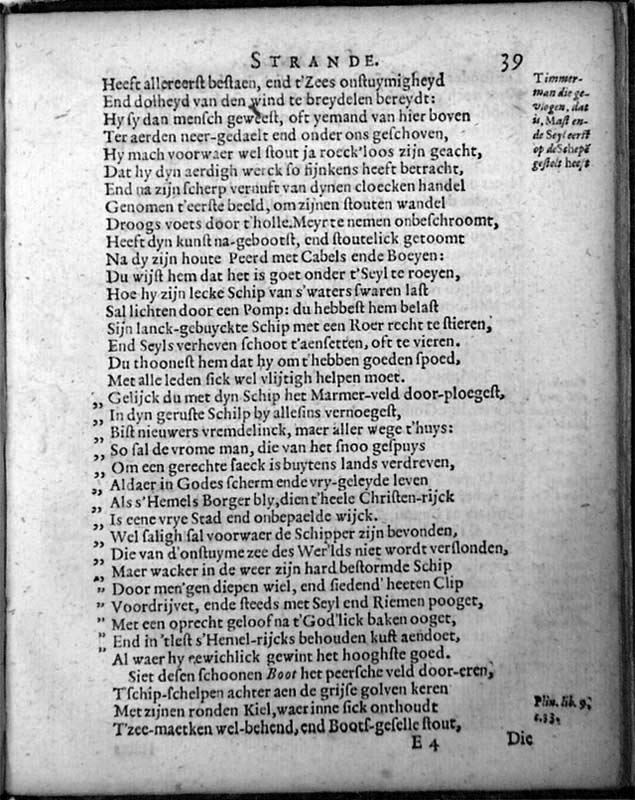 STRANDE. 39
Heeft allereerst bestaen, end t'Zees onstuymigheyd
End dolheyd van den wind te breydelen bereydt:
Hy sy dan mensch geweest, oft yemand van hier boven
Ter aerden neer-gedaelt end onder ons geschoven,
Hy mach voorwaer wel stout ja roeck'loos zijn geacht,
Dat hy dyn aerdigh werck so fijnkens heeft betracht,
End na zijn scherp vernuft van dynen cloecken handel
Genomen t'eerste beeld, om zijnen stouten wandel
Droogs voets door t'holle Meyr te nemen onbeschroomt,
Heeft dyn kunst na-gebootst, end stoutelick getoomt
Na dy zijn houte Peerd met Cabels ende Boeyen:
Du wijst hem dat het is goet onder t'Seyl te roeyen,
Hoe hy zijn lecke Schip van s'waters swaren last
Sal lichten door een Pomp: du hebbest hem belast
Sijn lanck-gebuyckte Schip met een Roer recht te stieren,
End Seyls verheven schoot t'aensetten, oft te vieren.
Du thoonest hem dat hy om t'hebben goeden spoed,
Met alle leden sick wel vlijtigh helpen moet.
„ Gelijck du met dyn Schip het Marmer-veld door-ploegest,
„ In dyn geruste Schilp by allesins vernoegest,
„ Bist nieuwers vremdelinck, maer aller wege t'huys:
„ So sal de vrome man, die van het snoo gespuys
„ Om een gerechte saeck is buytens lands verdreven,
„ Aldaer in Godes scherm ende vry-geleyde leven
„ Als s'Hemels Borger bly, dien t'heele Christen-rijck
„ Is eene vrye Stad end onbepaelde wijck.
„ Wel saligh sal voorwaer de Schipper zijn bevonden,
„ Die van d'onstuyme zee des Wer'lds niet wordt verslonden,
„ Maer wacker in de weer zijn hard bestormde Schip
„ Door men'gen diepen wiel, end siedend' heeten Clip
„ Voordrijvet, ende steeds met Seyl end Riemen pooget,
„ Met een oprecht geloof na t'God'lick baken ooget,
„ End in 'tlest s'Hemel-rijcks behouden kust aendoet,
„ Al waer hy eewichlick gewint het hooghste goed.
Siet desen schoonen Boot het peersche veld door-eren,
T'schip-schelpen achter aen de grijse golven keren
Met zijnen ronden Kiel, waer inne sick onthoudt
T'zee-maetken wel-behend, end Boots-geselle stout,
E 4 Die
Timmer-
man die ge-
vlogen, dat
is, Mast en-
de Seyl eerst
op de Schepē
gestelt heeft
Plin. lib. 9.
c. 33.